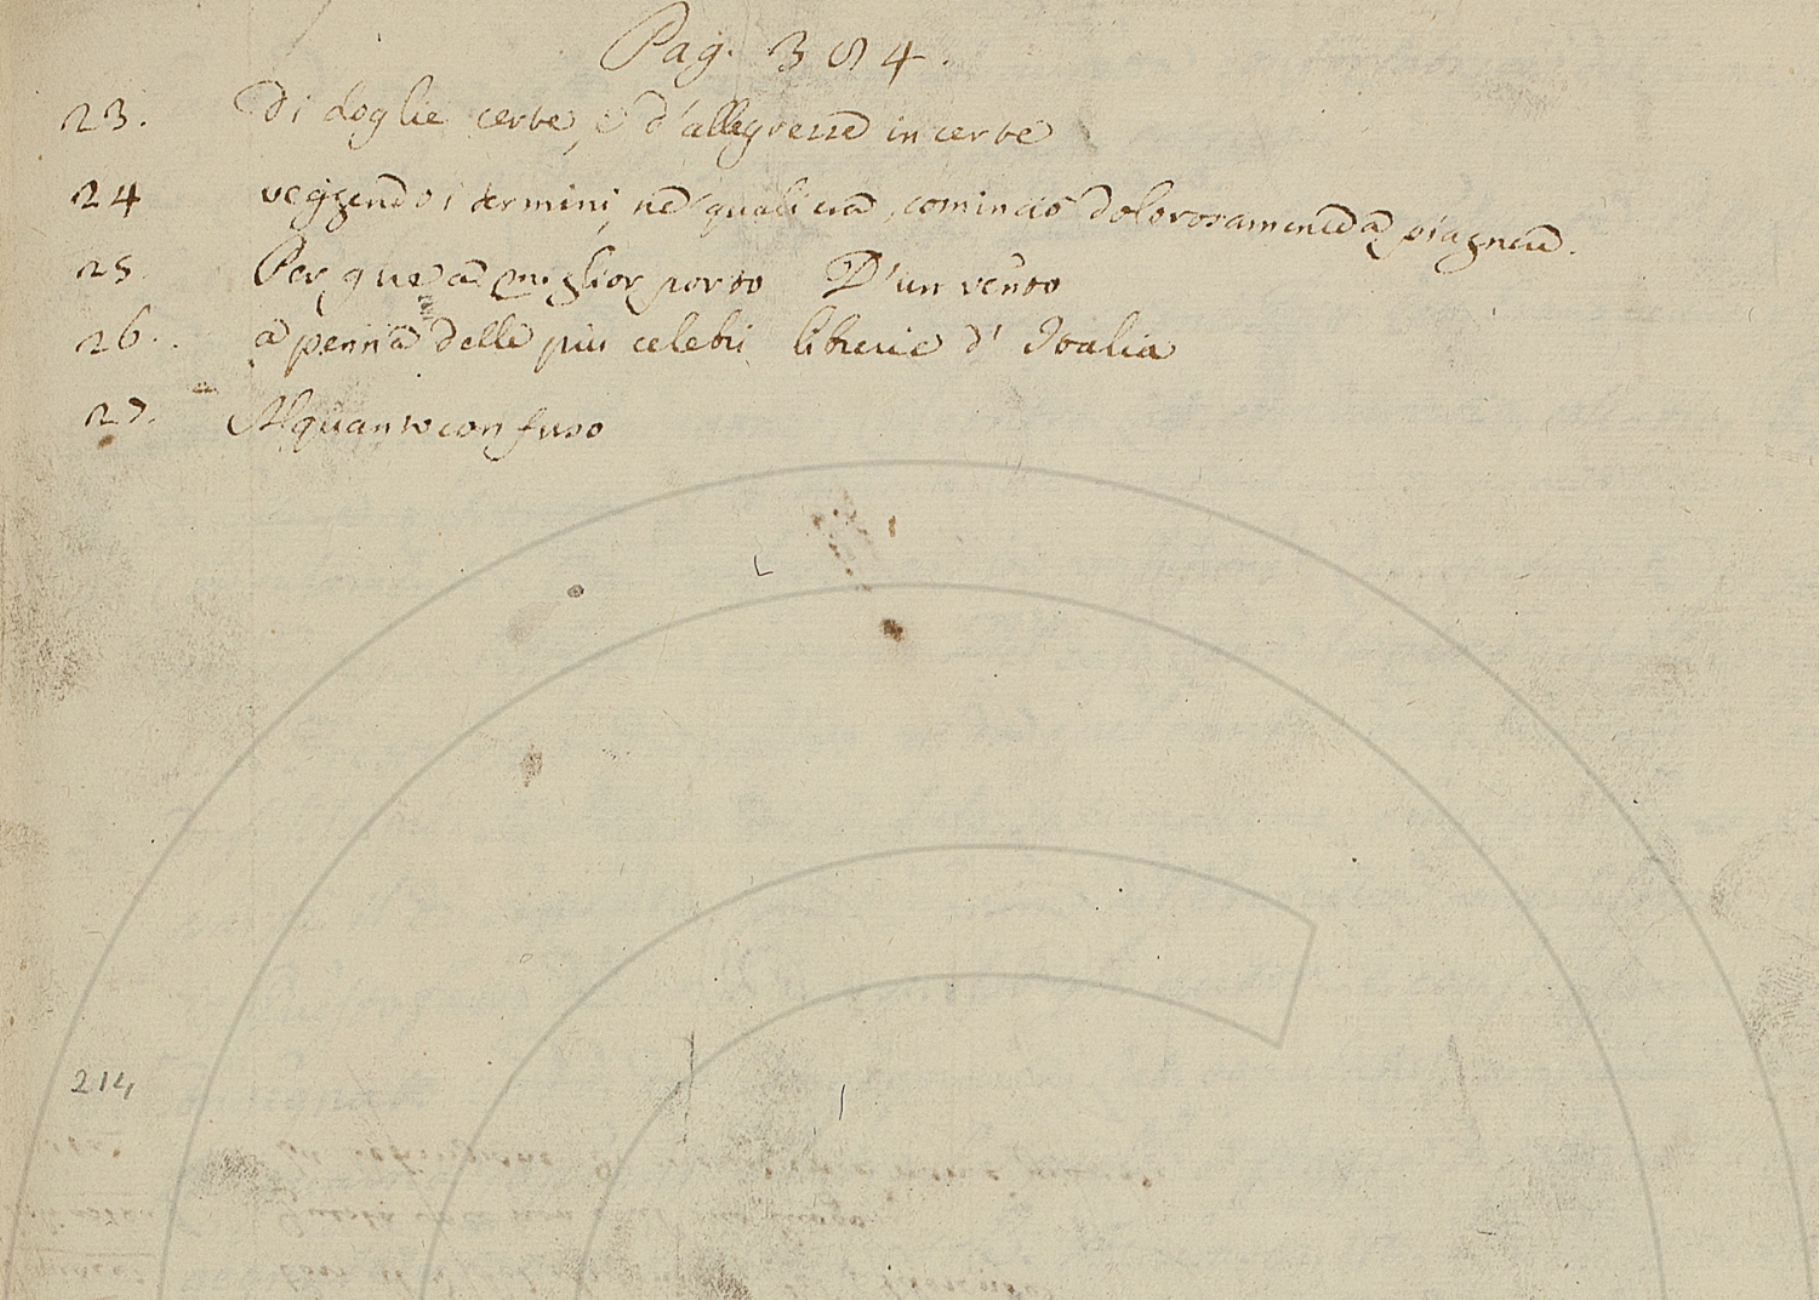 Pag. 384.
23. Di doglie certe, e d'allegrezze incerte
24 veggendo i termini, ne quali era, cominciò dolorosamente a piagnere.
25. Per que a miglior porto D'un vento
26. a penna delle più celebri librerie d' Italia
27. Alquanto confuso
214